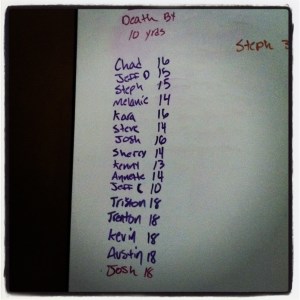 Death By
10 yrds
Steph
Chad 16
Jeff D 15
Steph 15
Melanie 14
Kara 16
Steve 14
Josh 16
Sherry 14
Kenny 13
Annette 14
Jeff C 10
Triston 18
Trenton 18
Kevin 18
Austin 18
Josh 18